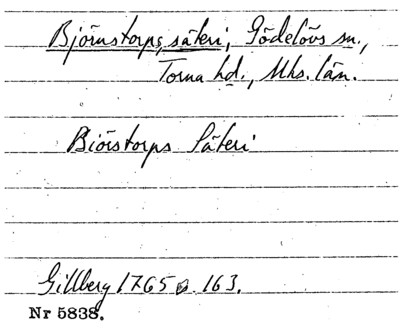 Björnstorps, säteri, Gödelövs sn.,
Torna hd., Mhs. län.
Biörstorps Säteri
Gillberg 1765 s. 163.
Nr 5838.